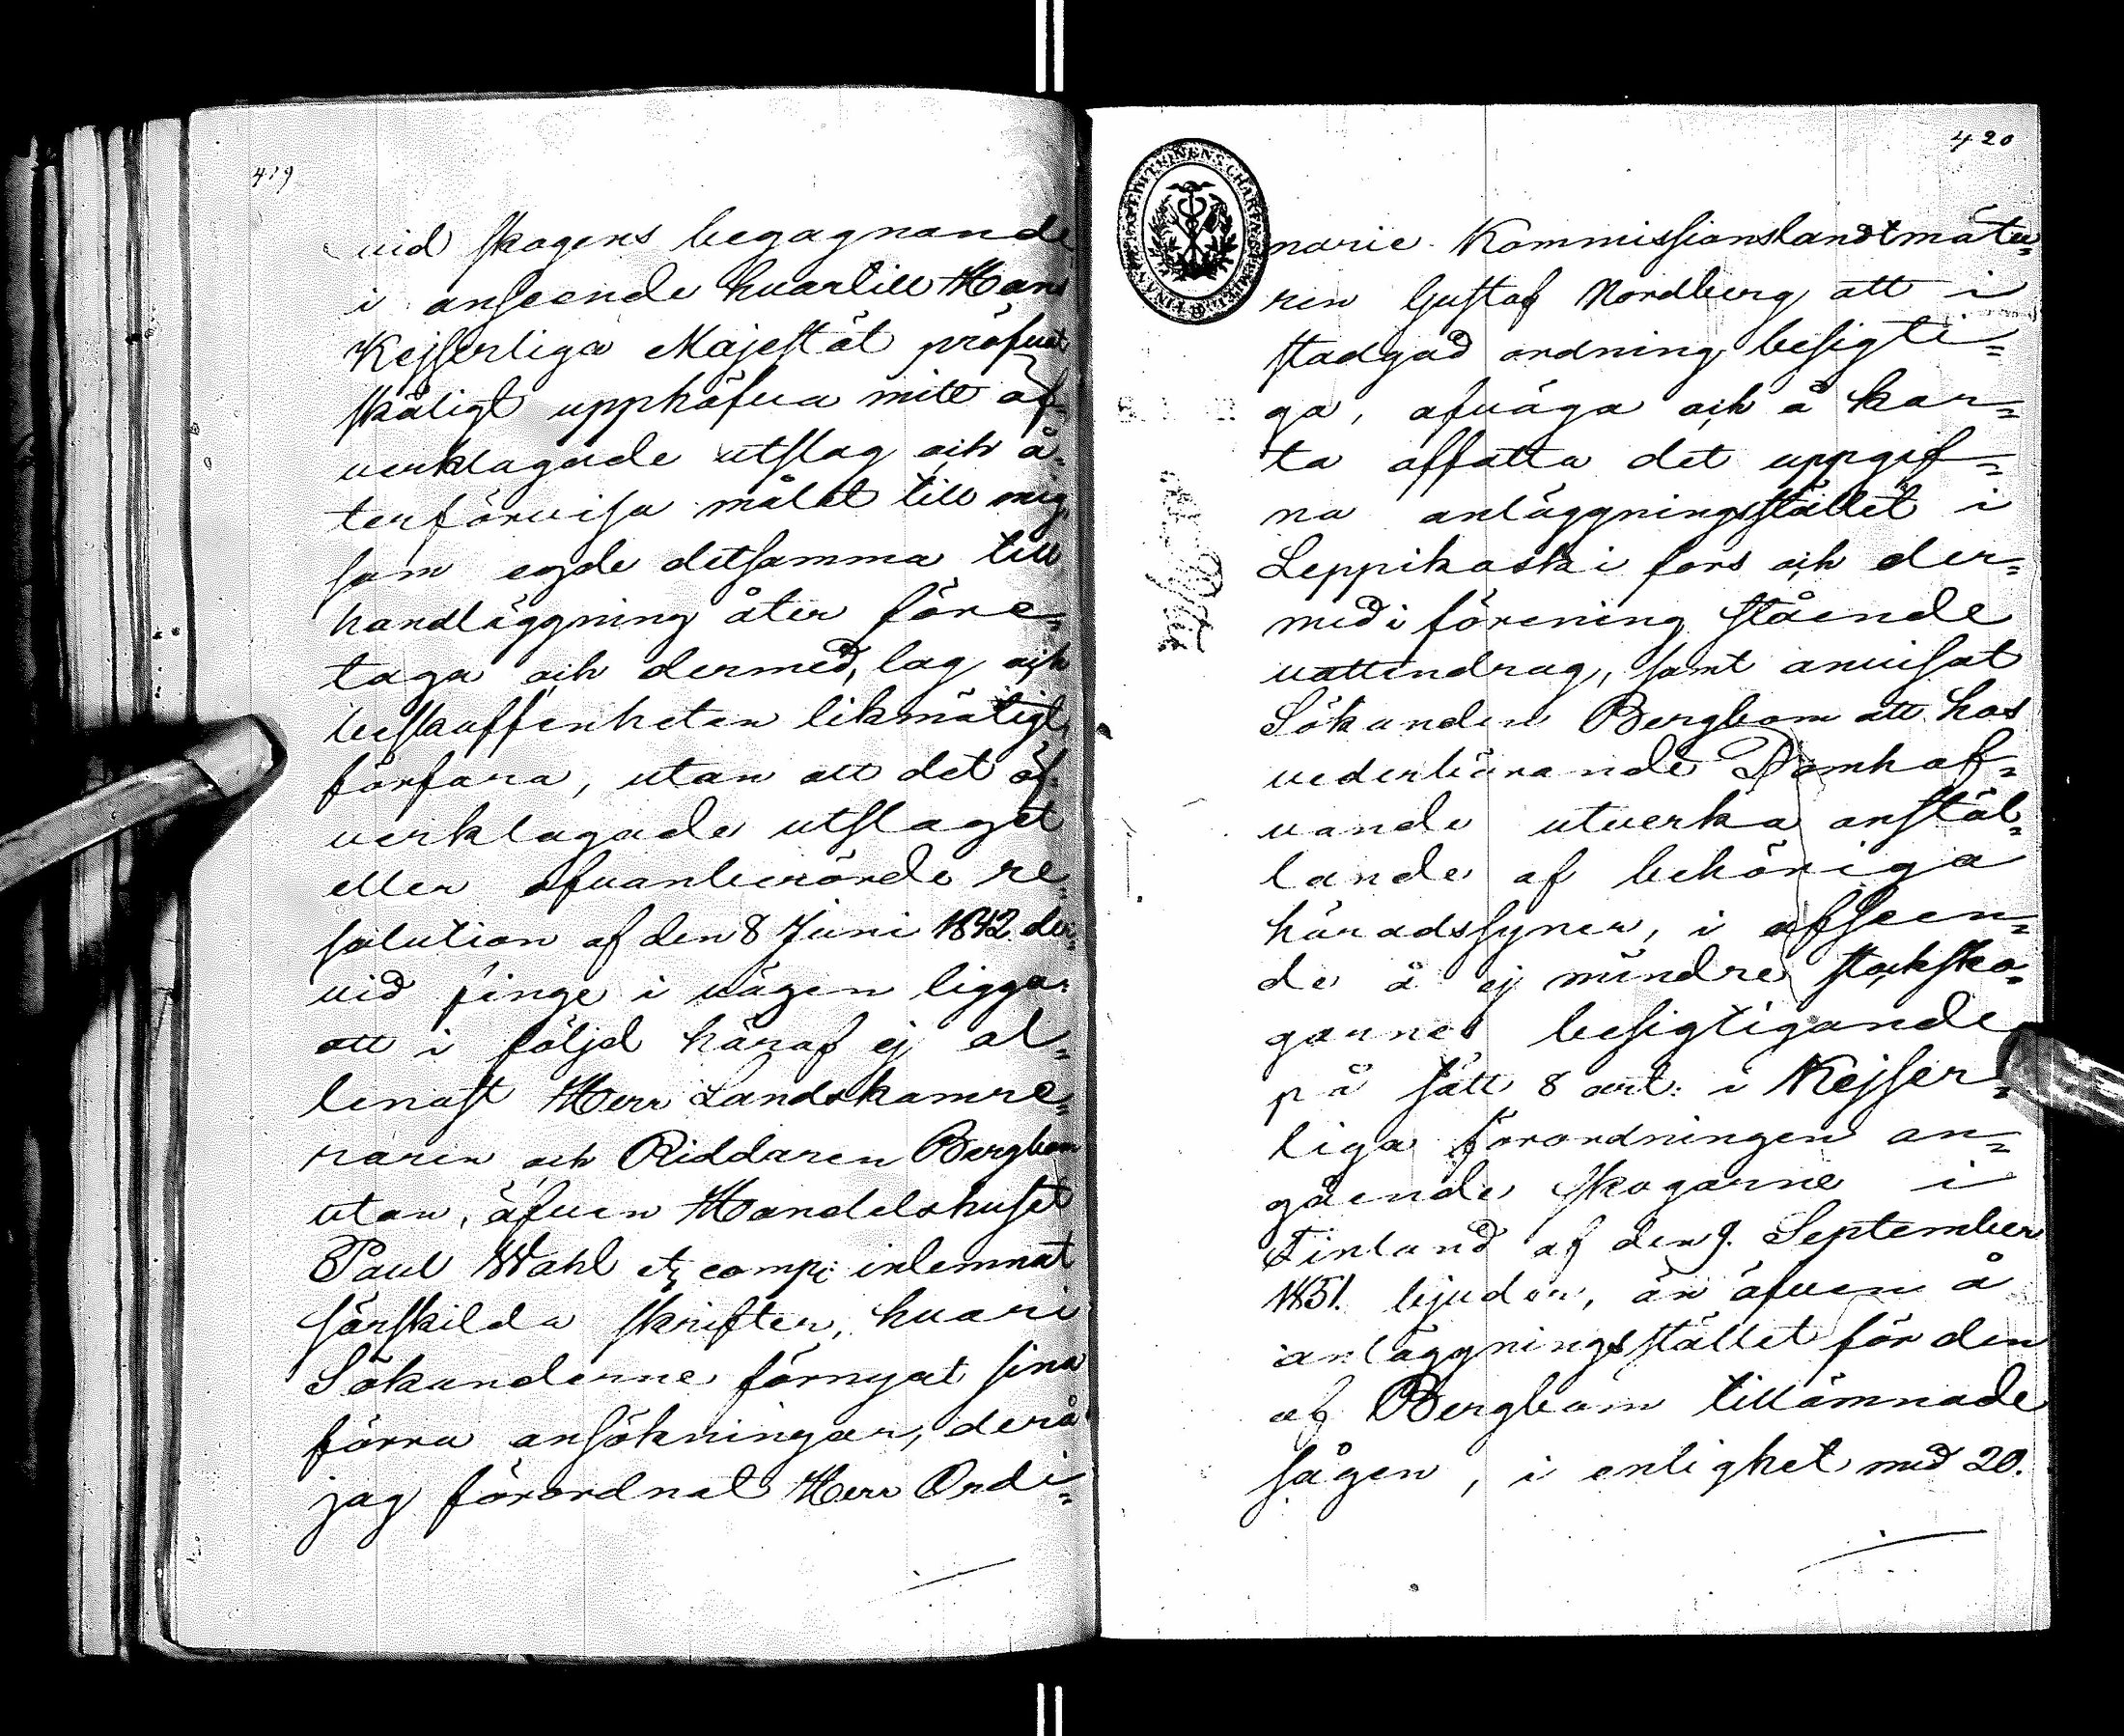 419
vid skogens begagnande
i anseende hvartill Hans
Kejserliga Majestät pröfvat
skäligt upphäfva mitt öf-
verklagade utslag och å-
terförvisa målet till mig,
som egde detsamma till
handläggning åter före-
taga och dermed, lag och
beskaffenheten likmätigt,
förfara, utan att det öf-
verklagade utslaget
eller ofvanberörde re-
solution af den 8 Juni 1842. der-
vid finge i vägen ligga:
att i följd häraf ej al-
lenast Herr Landskamre-
raren och Riddaren Bergbom
utan, äfven Handelshuset
Paul Wahl et comp: inlemnat
särskilda skrifter, hvari
Sökanderne förnyat sina
förra ansökningar, derå
jag förordnat Herr Ordi-
420
narie Kommissionslandtmäte-
ren Gustaf Nordberg att i
stadgad ordning besigti-
ga, afväga och å kar-
ta affatta det uppgif-
na anläggningsstället i
Leppikoski fors och der-
med i förening stående
vattendrag, samt anvisat
Sökanden Bergbom att hos
vederbörande Domhaf-
vande utverka anstäl-
lande af behöriga
häradssyner, i afseen-
de å ej mindre stocksko-
garnes besigtigande
på sätt 8 art: i Kejser-
liga förordningen an-
gående skogarne i
Finland af den 9. September
1851. bjuder, än äfven å
anläggningsstället för den
af Bergbom tillämnade
sågen, i enlighet med 20.